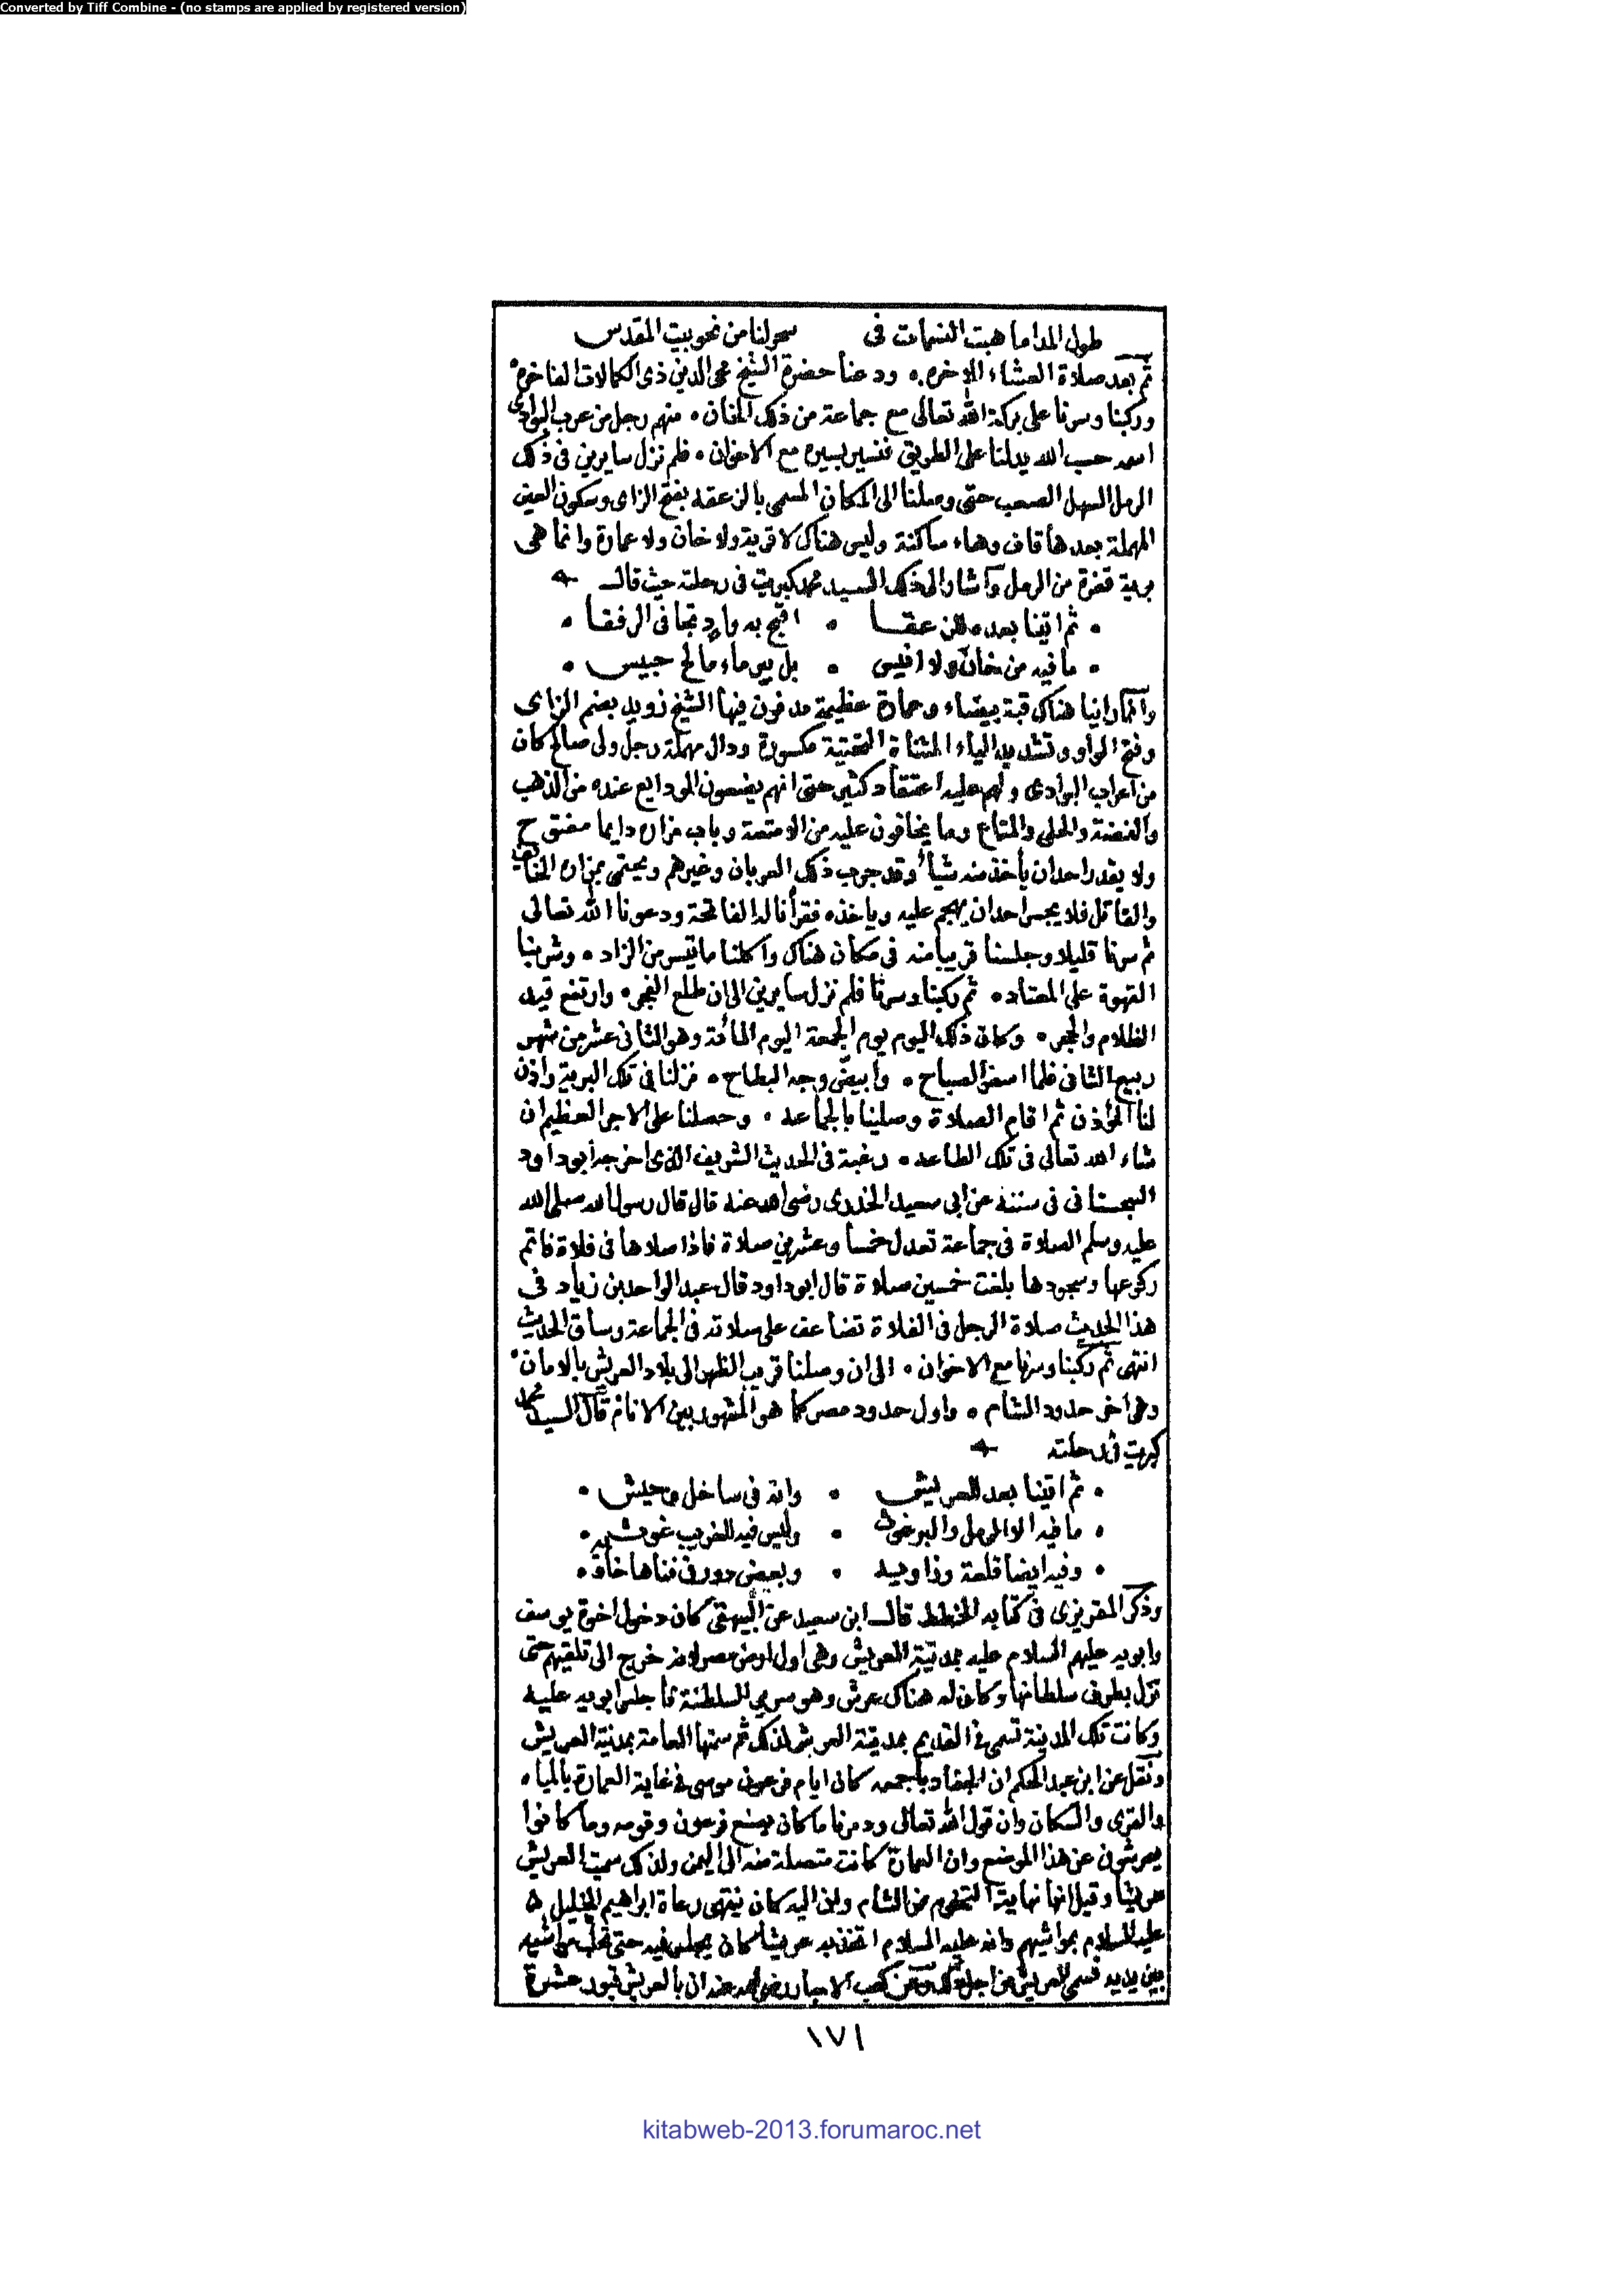 Converted by Tiff Combine - (no stamps are applied by registered version)
طول المدا ما هبت النسمات فى سحولنا من نحو بيت المقدس
ثم بعد صلاة العشاء الاخره ۰ ودعنا حضرة الشيخ محى الدين ذى الكمالات الفاخره ۰
وركبنا وسرنا على بركة الله تعالى مع جماعة من ذلك الخان ۰ منهم رجل من عرب البوادى
اسمه حسب الله يدلنا على الطريق فنسير بسيره مع الاخوان ۰ فلم نزل سايرين فى ذلك
الرمل السهل الصعب حتى وصلنا الى المكان المسمى بالزعقه بفتح الزاى وسكون العين
المهملة بعدها قاف وهاء ساكنة وليس هناك لا قرية ولا خان ولا عمارة وانما هى
برية قفرة من الرمل واشار الى ذلك السيد محمد كبريت فى رحلته حيث قال
۰ ثم اتينا بعده للزعقا ۰ اقبح به واد تجافى الرفقا ۰
۰ ما فيه من خان ولا انيس ۰ بل بير ماء مالح حبيس ۰
وانما راينا هناك قبة بيضاء وعمارة عظيمة مدفون فيها الشيخ زويد بضم الزاى
وفتح الواو وتشديد الياء المثناة التحتية مكسورة ودال مهملة رجل ولى صالح كان
من اعراب البوادى ولهم عليه اعتقاد كثير حتى انهم يضعون الودايع عنده من الذهب
والفضة والحلى والمتاع وما يخافون عليه من الامتعة وباب مزاره دايما مفتوح
ولا يقدر احد ان يأخذ منه شيأ وقد جرب ذلك العربان وغيرهم ويحتمى بمزاره الخائف
والقاتل فلا يجسر احد ان يهجم عليه وياخذه فقرأنا له الفاتحة ودعونا الله تعالى
ثم سرنا قليلا وجلسنا قريبا منه فى مكان هناك واكلنا ما تيسر من الزاد ۰ وشربنا
القهوة على المعتاد ۰ ثم ركبنا وسرنا فلم نزل سايرين الى ان طلع الفجر ۰ وارتفع قيد
الظلام والحجر ۰ وكان ذلك اليوم يوم الجمعة اليوم المائة وهو الثانى عشر من شهر
ربيع الثانى فلما اسفر الصباح ۰ وابيضّ وجه البطاح ۰ نزلنا فى تلك البرية واذن
لنا المؤذن ثم اقام الصلاة وصلينا بالجماعه ۰ وحصلنا على الاجر العظيم ان
شاء الله تعالى فى تلك الطاعه ۰ رغبة فى الحديث الشريف الذى اخرجه أبو داود
السجستانى فى سننه عن ابى سعيد الخدرى رضى الله عنه قال قال رسول الله صلى الله
عليه وسلم الصلاة فى جماعة تعدل خمسا وعشرين صلاة فاذا صلاها فى فلاة فاتم
ركوعها وسجودها بلغت خمسين صلاة قال ابو داود قال عبد الواحد بن زياد فى
هذا الحديث صلاة الرجل فى الفلاة تضاعف على صلاته فى الجماعة وساق الحديث
انتهى ثم ركبنا وسرنا مع الاخوان ۰ الى ان وصلنا قريب الظهر الى بلاد العريش بالامان ۰
وهى آخر حدود الشام ۰ واول حدود مصر كما هو المشهور بين الانام قال السيد محمد
كبريت فى رحلته
۰ ثم اتينا بعد للعريش ۰ وانه فى ساحل وحيش ۰
۰ ما فيه الا الرمل والبرغوث ۰ وليس فيه للغريب غوث ۰
۰ وفيه ايضا قلعة وزاويه ۰ وبعض دور فى فناها خاويه ۰
وذكر المقريزى فى كتابه الخطط قال ابن سعيد عن البيهقى كان دخول اخوة يوسف
وابويه عليهم السلام عليه بمدينة العريش وهى اول ارض مصر لانه خرج الى تلقيهم حتى
نزل بطرف سلطانها وكان له هناك عرش وهو سرير السلطنة فاجلس ابويه عليه
وكانت تلك المدينة تسمى فى القديم بمدينة العرش لذلك ثم سمتها العامة بمدينة العريش
ونقل عن ابن عبد الحكم ان الجفار باجمعه كان ايام فرعون موسى فى غاية العمارة بالمياه
والقرى والسكان وان قول الله تعالى ودمرنا ما كان يصنع فرعون وقومه وما كانوا
يعرشون عن هذا الموضع وان العمارة كانت متصلة منه الى اليمن ولذلك سميت العريش
عريشا وقيل انها نهاية التخوم من الشام وان اليه كان ينتهى رعاة ابراهيم الخليل
عليه السلام بمواشيهم وانه عليه السلام اتخذ به عريشا كان يجلس فيه حتى تحلب مواشيه
بين يديه فسمى العريش من اجل ذلك وعن كعب الاحبار رضى الله عنه ان بالعريش قبور عشرة
١٧١
kitabweb-2013.forumaroc.net